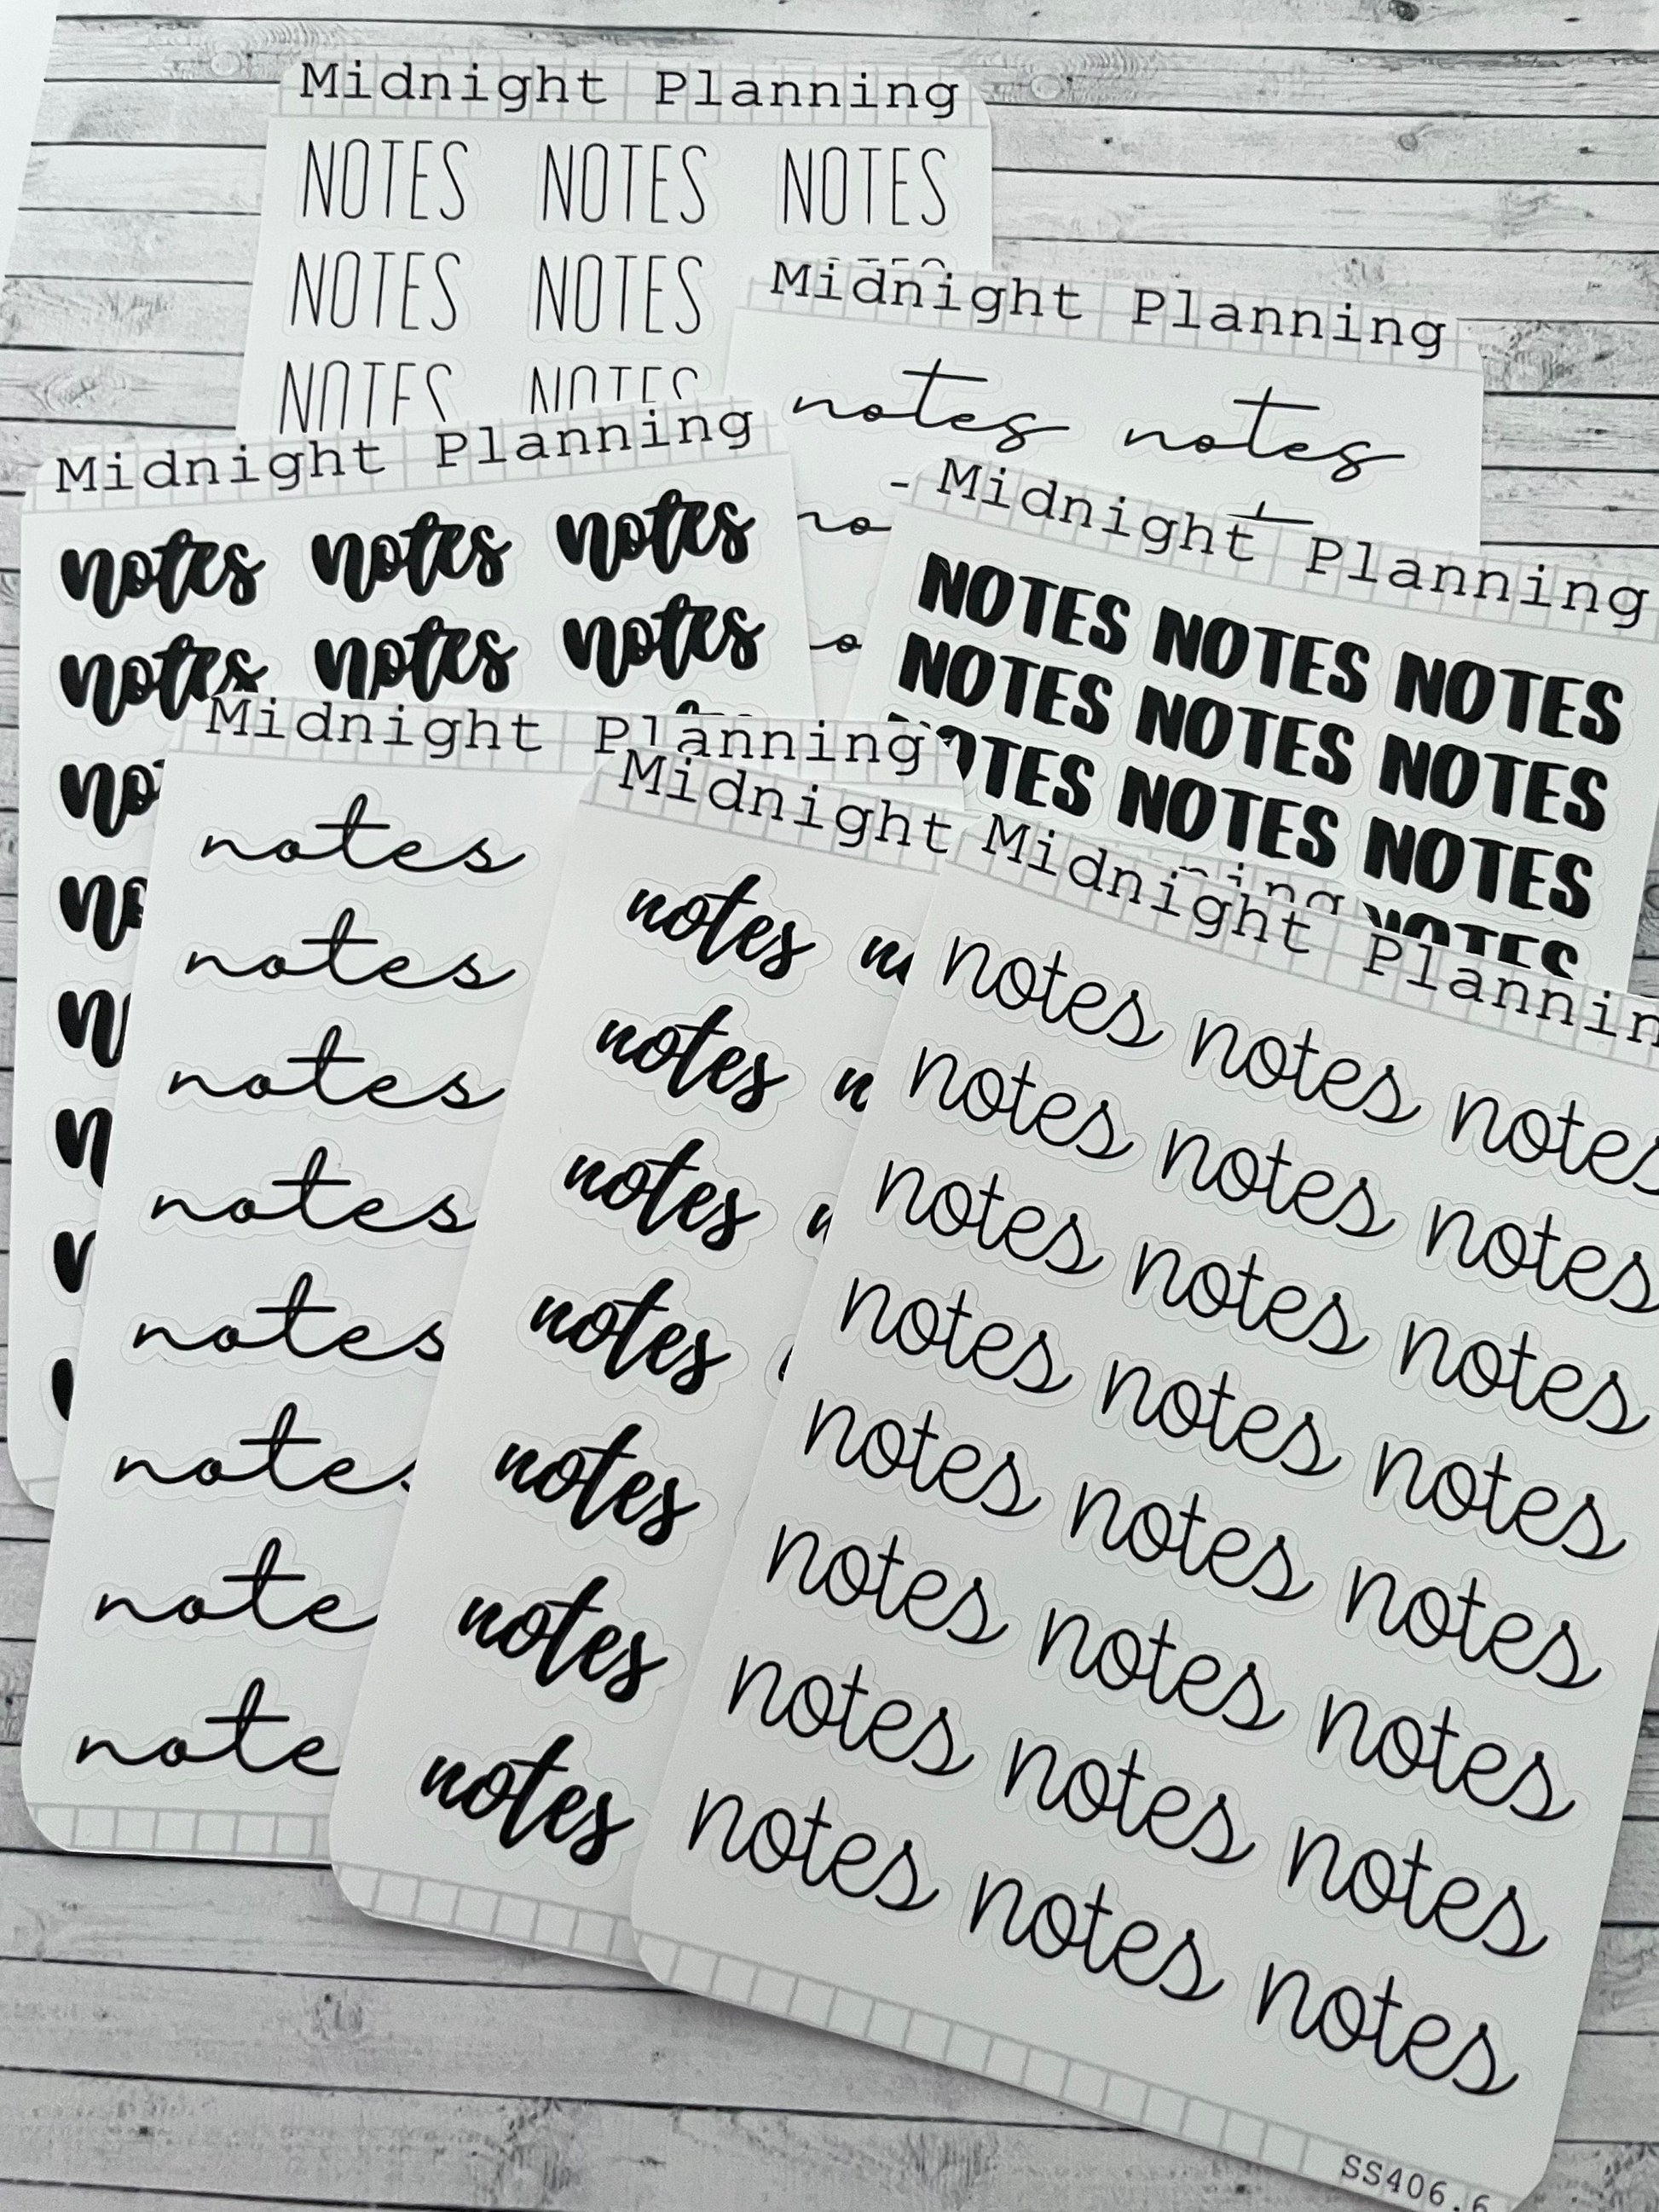 Midnight Planning
NOTES NOTES NOTES
NOTES NOTES
NOTES NOTES
Midnight Planning
notes notes
Midnight Planning
notes notes notes
notes notes notes
Midnight Planning
NOTES NOTES NOTES
NOTES NOTES NOTES
NOTES NOTES NOTES
NOTES
Midnight Planning
notes
notes
notes
notes
notes
note
note
note
Midnight
notes
notes
notes
notes
notes
notes
notes
Midnight Plannin
notes notes notes
notes notes notes
notes notes notes
notes notes notes
notes notes notes
notes notes notes
notes notes notes
notes notes notes
SS406.6